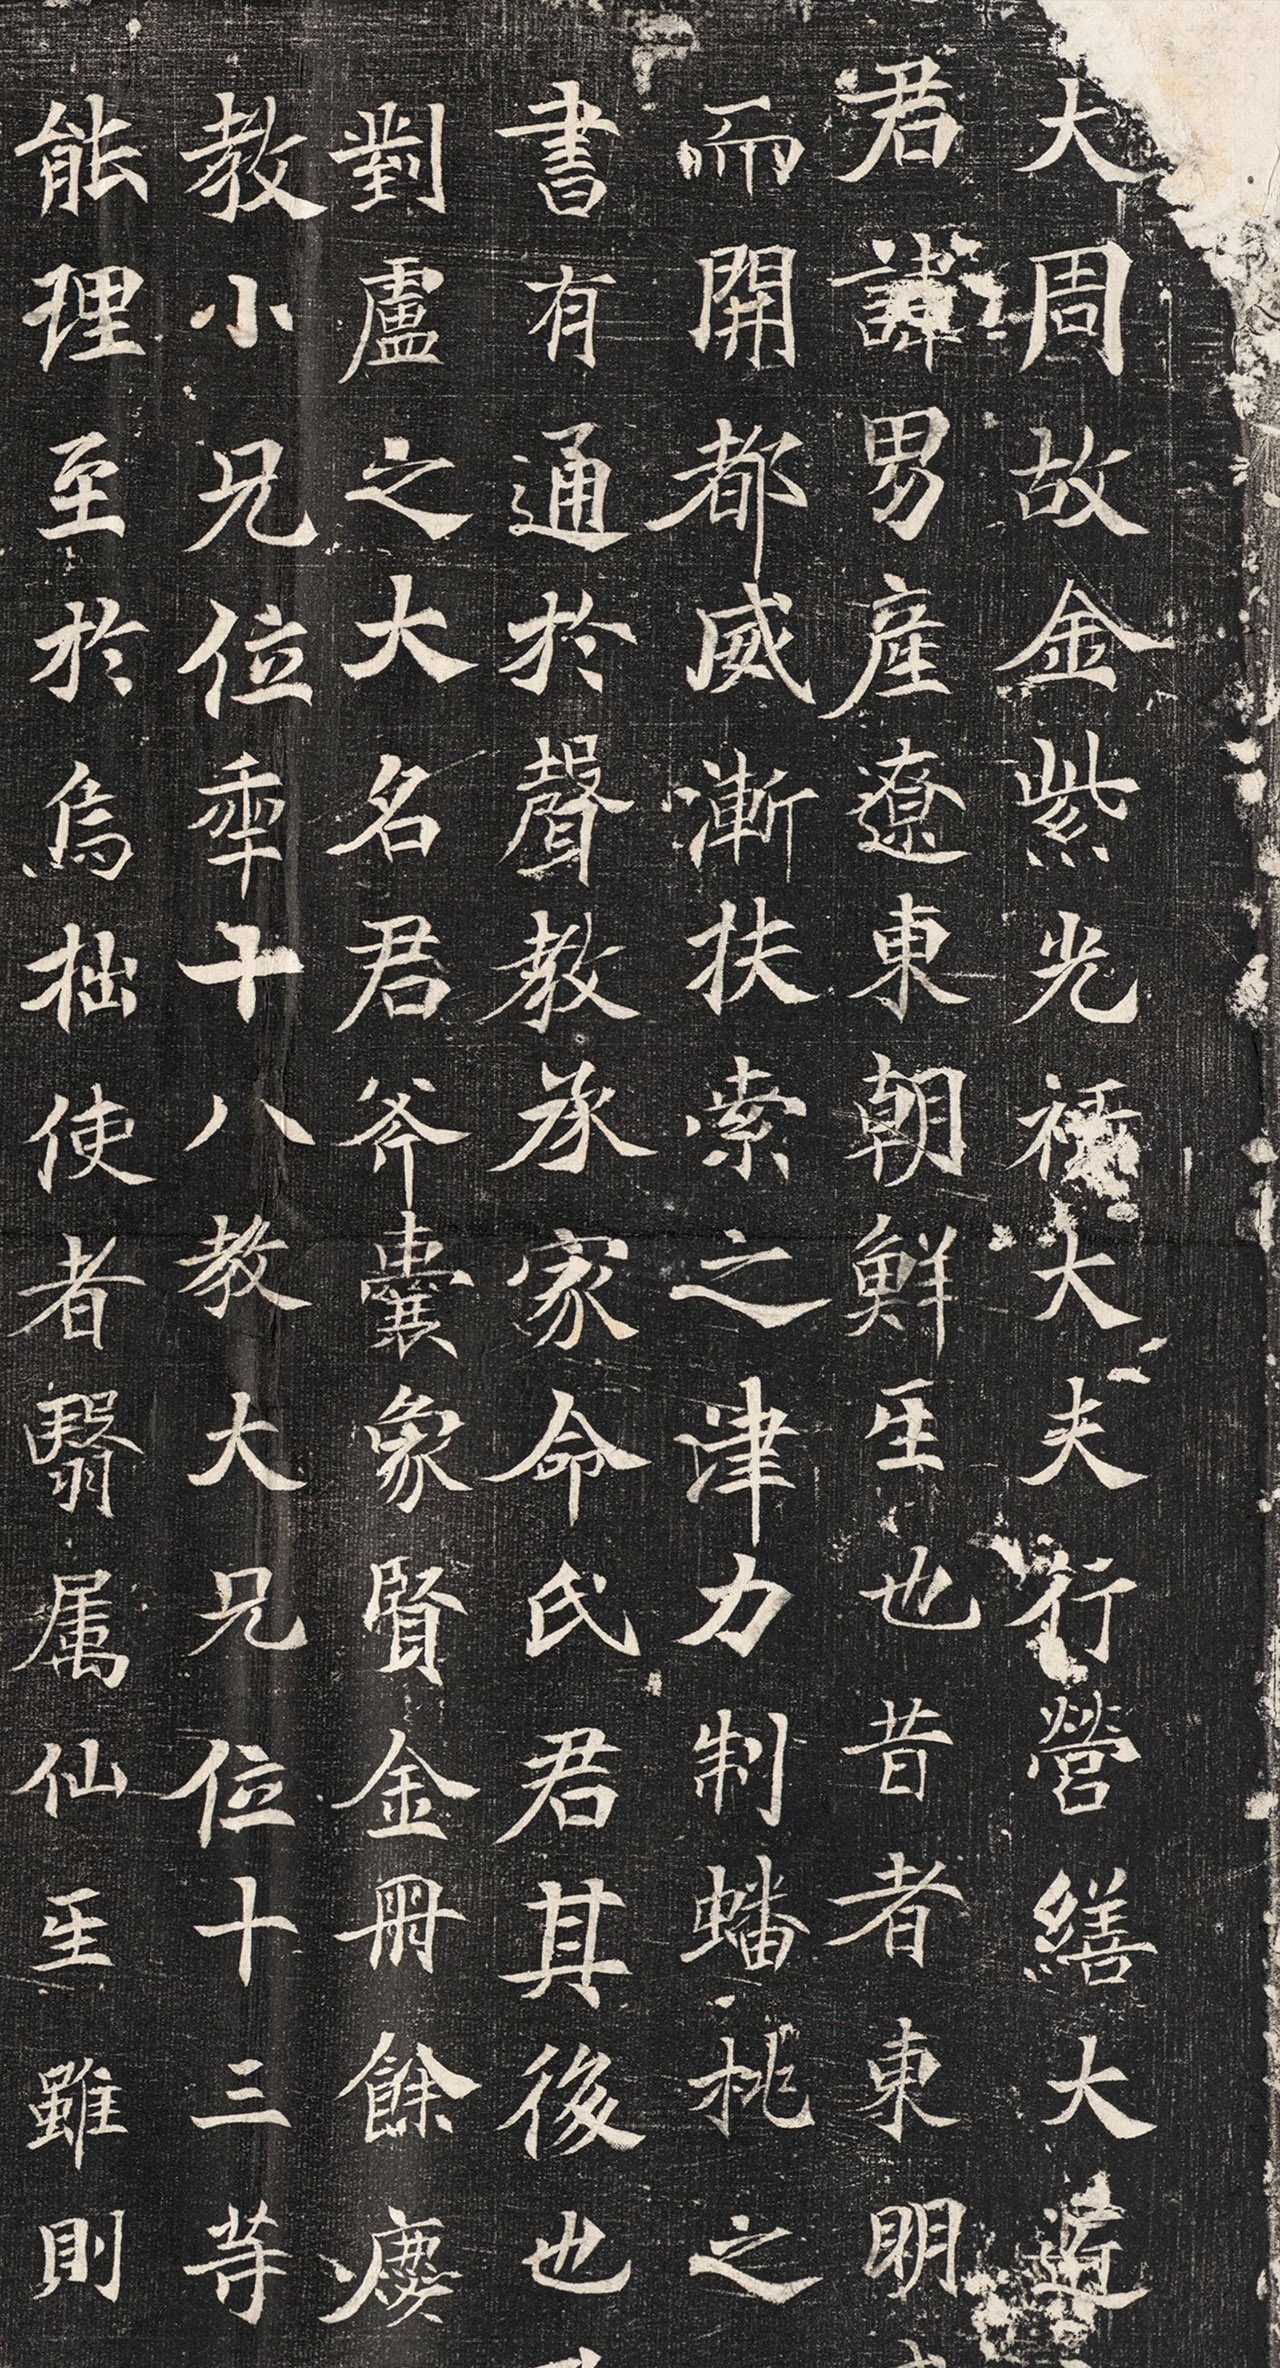 大周故金紫光祿大夫行營繕大匠
君諱男產遼東朝鮮𤯔也昔者東明
而開都威漸扶索之津力制蟠桃之
書有通於聲教承家命氏君其後也
對盧之大名君斧囊象賢金冊餘慶
教小兄位年十八教大兄位十三等
能理至於烏拙使者翳属仙𤯔雖則